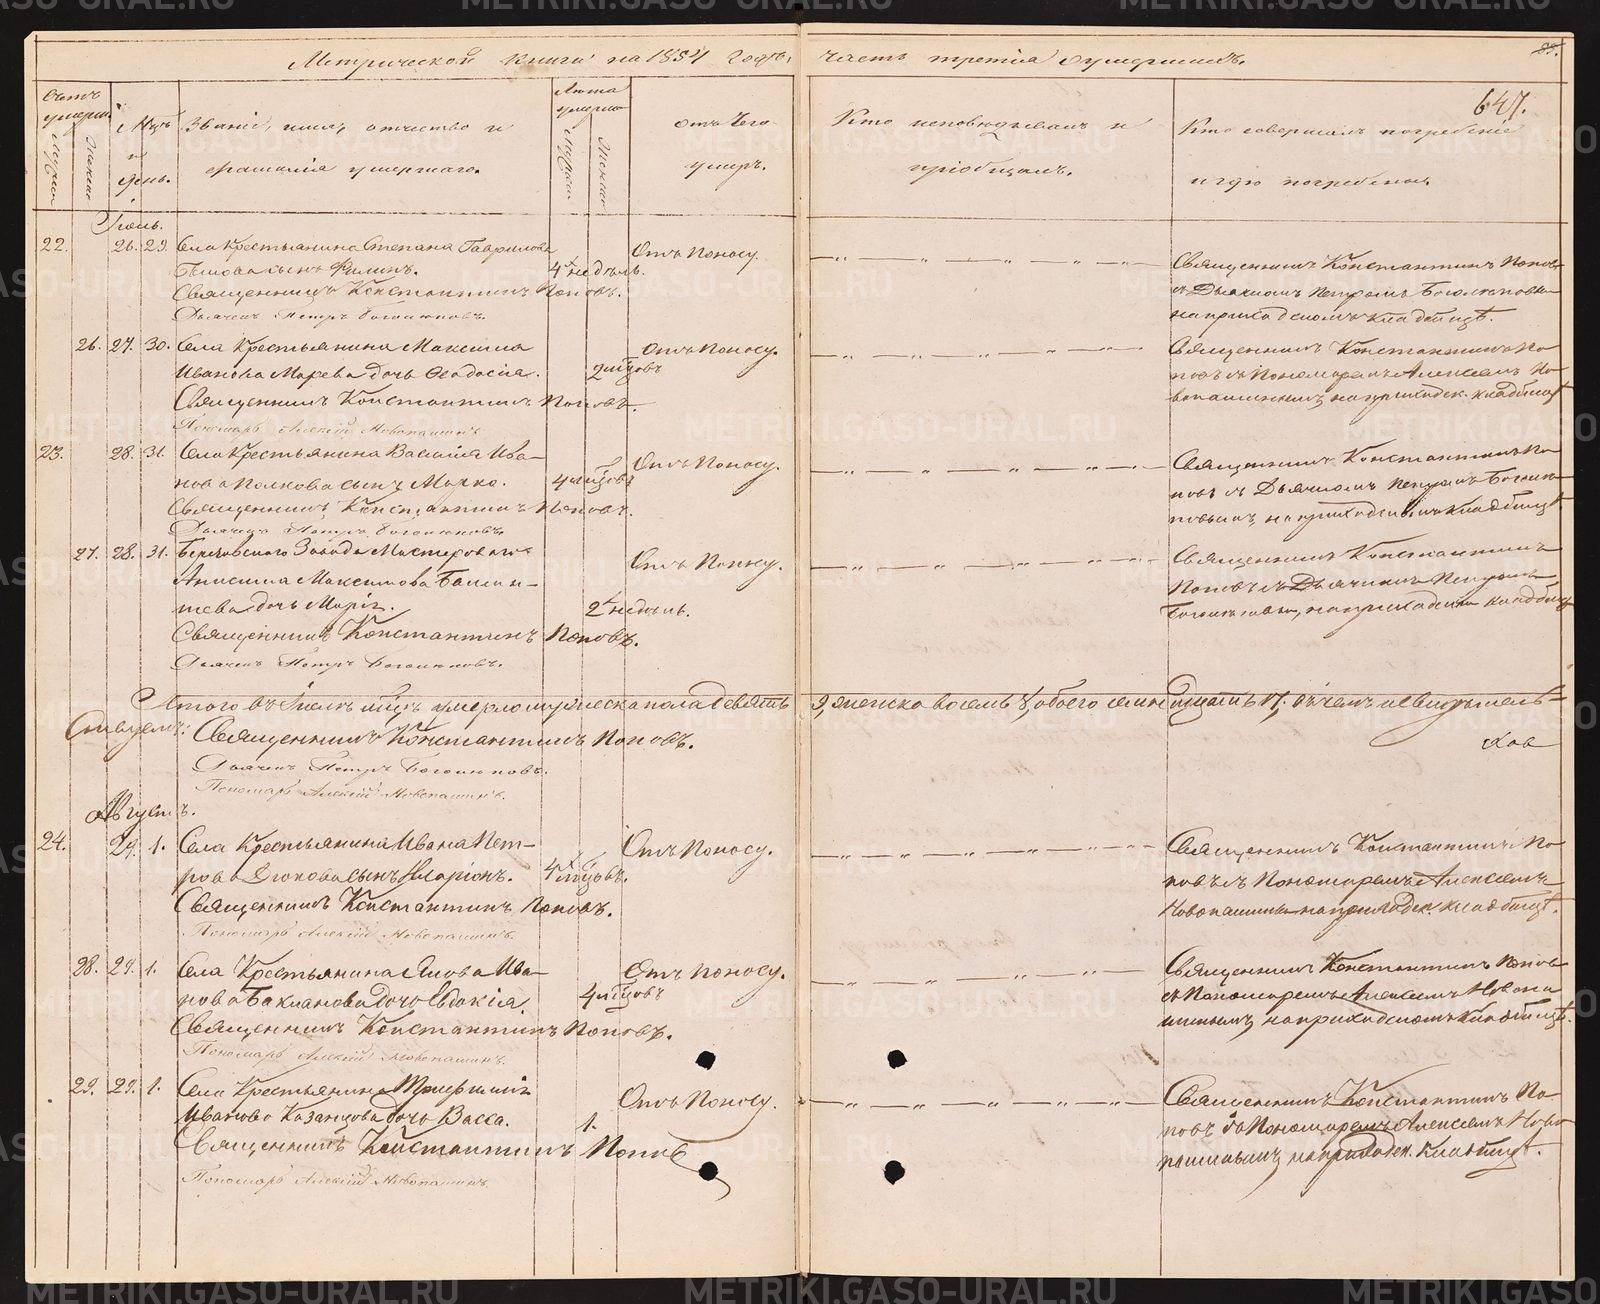 Метрической книги на 1854 годъ,
часть третія о умершихъ.
89.
647.
Счетъ умерш.
Мужска
Женска
Мцъ и день.
Званіе, имя, отчество и
фамилія умершаго.
Лѣта умерш
Мужска
Женска
Отъ чего
умеръ.
Кто исповѣдывалъ и
пріобщалъ.
Кто совершалъ погребеніе
и гдѣ погребены.
Іюль.
22. 26. 29. Села Крестьянина Степана Гаврилова
сынъ Филипъ. 4 недѣль. Отъ поносу.
Священникъ Константинъ Поповъ.
Дьячекъ Петръ Боголюповъ.
Священникъ Константинъ Поповъ
съ Дьячкомъ Петромъ Боголюповым
на приходскомъ кладбищѣ.
26. 27. 30. Села Крестьянина Максима
Иванова Марева дочь Ѳеодосія. 2 мцовъ Отъ поносу.
Священникъ Константинъ Поповъ.
Пономарь Алексій Новопашинъ
Священникъ Константинъ По
повъ съ Пономаремъ Алексеемъ Но
вопашинымъ, на приходск. кладбищѣ
23. 28. 31. Села Крестьянина Василія Ива-
нова Попкова сынъ Марко. 4 мцовъ Отъ поносу.
Священникъ Константинъ Поповъ.
Дьячекъ Петръ Боголюповъ
Священникъ Константинъ По
повъ съ Дьячкомъ Петромъ Боголю
повымъ, на приходскомъ кладбищѣ.
27. 28. 31. Березовскаго Завода Мастероваго
Анисима Максимова
дочь Марія. 2 недѣль. Отъ поносу.
Священникъ Константинъ Поповъ.
Дьячекъ Петръ Боголюповъ.
Священникъ Константинъ
Поповъ съ Дьячкомъ Петромъ
Боголюповым, на приходском кладбищѣ
Итого въ Іюлѣ мцѣ умерло мужеска пола девять 9, женска восемь 8, обоего семнадцать 17; въ чемъ и свидѣтель-
ствуемъ: Священникъ Константинъ Поповъ.
Дьячекъ Петръ Боголюповъ.
Пономарь Алексій Новопашинъ.
Августъ.
24. 29. 1. Села Крестьянина Ивана Пет-
рова сынъ Иларіонъ. 4 мцовъ. Отъ поносу.
Священникъ Константинъ Поповъ.
Пономарь Алексій Новопашинъ.
Священникъ Константинъ По
повъ съ Пономаремъ Алексеемъ
Новопашиным на приходск. кладбищѣ.
28. 29. 1. Села Крестьянина Якова Ива-
нова Бакланова дочь Евдокія. 4 мцовъ Отъ поносу.
Священникъ Константинъ Поповъ.
Пономарь Алексій Новопашинъ.
Священникъ Константинъ Поповъ
съ Пономаремъ Алексеемъ Новопа
шинымъ, на приходскомъ кладбищѣ.
29. 29. 1. Села Крестьянина
Иванова Казанцова дочь Васса. 1. Отъ поносу.
Священникъ Константинъ Поповъ
Пономарь Алексій Новопашинъ.
Священникъ Константинъ По
повъ съ Пономаремъ Алексеемъ Ново
пашинымъ, на приходск. кладбищѣ.
METRIKI.GASO-URAL.RU